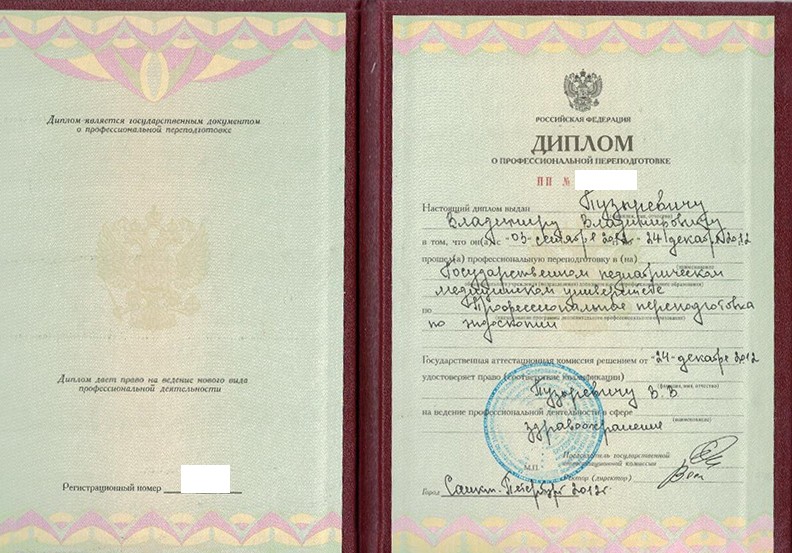 Диплом является государственным документом
о профессиональной переподготовке
Диплом дает право на ведение нового вида
профессиональной деятельности
Регистрационный номер
РОССИЙСКАЯ ФЕДЕРАЦИЯ
ДИПЛОМ
О ПРОФЕССИОНАЛЬНОЙ ПЕРЕПОДГОТОВКЕ
ПП №
Настоящий диплом выдан Пузыревичу
(фамилия, имя, отчество)
Владимиру Владимировичу
в том, что он(а) с -03- сентября 2012 - 24 декабря 2012
прошел(а) профессиональную переподготовку в (на)
Государственном педиатрическом
медицинском университете
по Профессиональная переподготовка
по эндоскопии
Государственная аттестационная комиссия решением от -24- декабря 2012
удостоверяет право (соответствие квалификации)
(фамилия, имя, отчество)
Пузыревичу В.В
на ведение профессиональной деятельности в сфере
(наименование)
здравоохранения
Председатель государственной
аттестационной комиссии
М.П.
Ректор (директор)
Город Санкт-Петербург 2012г.